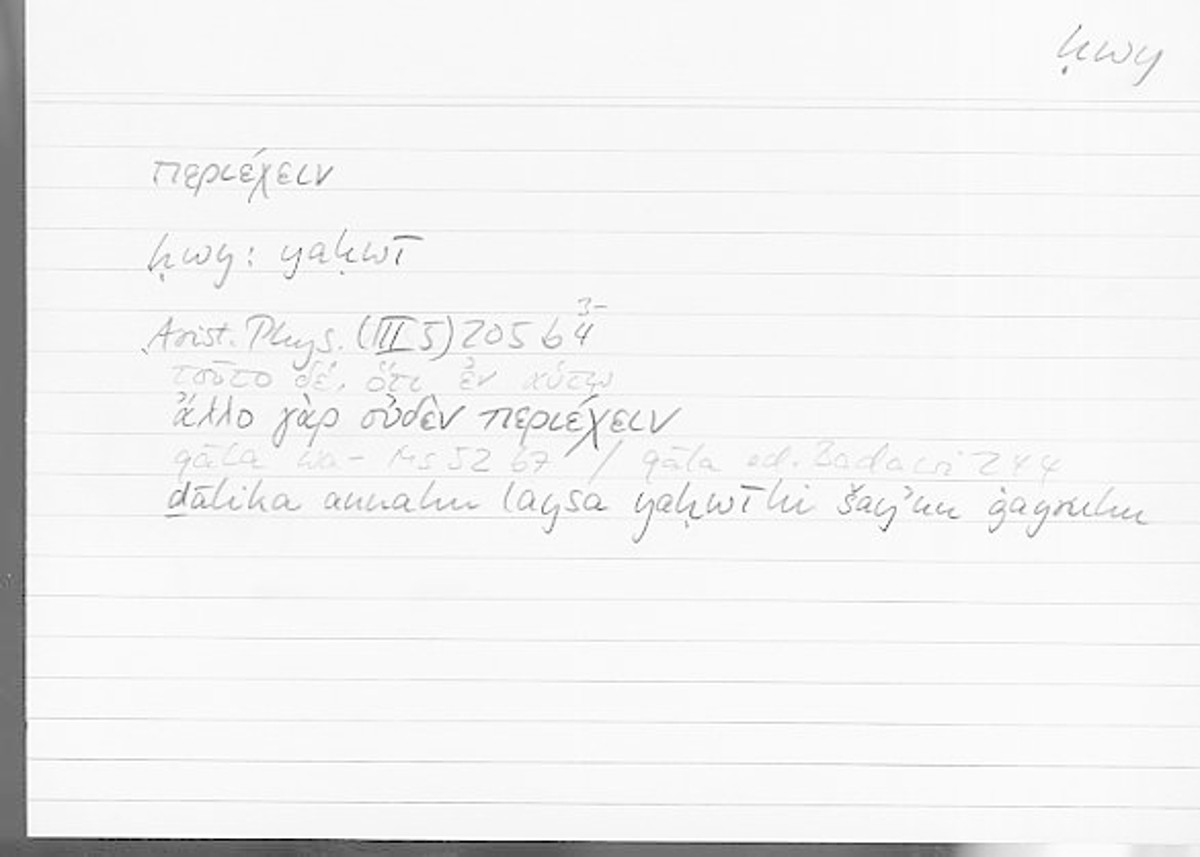 ḥwy
περιέχειν
ḥwy: yaḥwī
Arist. Phys. (III 5) 205 b 4
3–
τοῦτο δέ, ὅτι ἐν αὑτῷ
ἄλλο γὰρ οὐδὲν περιέχειν
qāla wa- Ms 52 b7 / qāla ed. Badawi 244
ḏālika annahu laysa yaḥwīhi šay'un ġayruhu